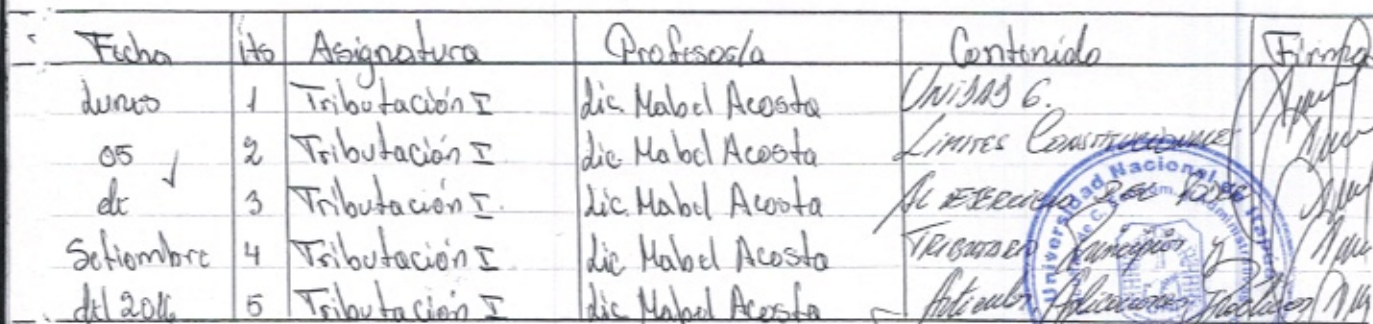 Fecha íts Asignatura Profesor/a Contenido Firma
Lunes 1 Tributación I Lic. Mabel Acosta Unidad 6.
05 2 Tributación I Lic. Mabel Acosta Límites Constitucionales
de 3 Tributación I. Lic. Mabel Acosta Al ejercicio del Poder
Setiembre 4 Tributación I Lic. Mabel Acosta Tributario Principios y
del 2016 5 Tributación I Lic. Mabel Acosta Articulos Aplicaciones Practicas
Universidad Nacional de Itapúa